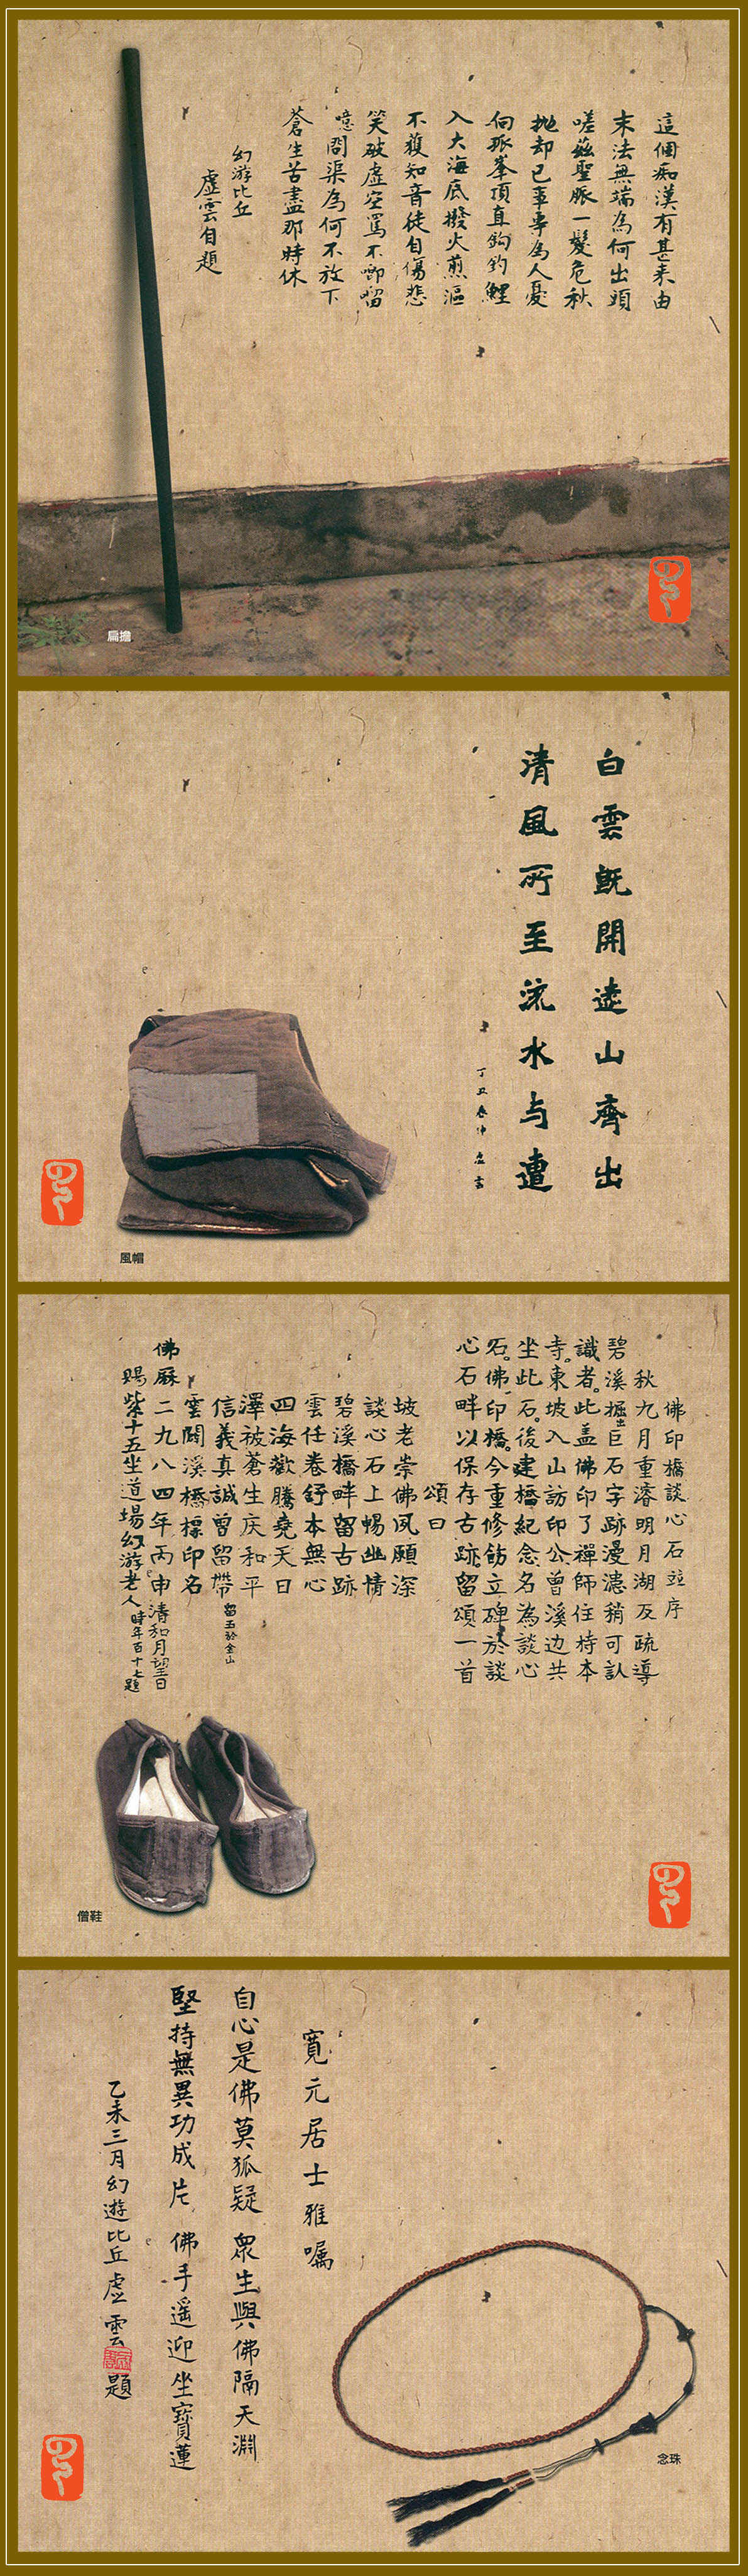 這個痴漢有甚來由
末法無端為何出頭
嗟茲聖脈一髮危秋
拋却己事專為人憂
向孤峯頂直鈎釣鯉
入大海底撥火煎漚
不獲知音徒自傷悲
笑破虛空罵不唧㗰
噫問渠為何不放下
蒼生苦盡那時休
幻游比丘
虛雲自題
扁擔
白雲旣開遠山齊出
清風所至流水与遭
丁丑春仲虛書
風帽
佛印橋談心石並序
秋九月重濬明月湖及疏導
碧溪掘出巨石字跡漫漶稍可認
識者。此盖佛印了禪師住持本
寺。東坡入山訪印公曾溪边共
坐此石。後建橋紀念名為談心
石。佛印橋。今重修飭立碑於談
心石畔以保存古跡留頌一首
頌曰
坡老崇佛夙願深
談心石上暢幽情
碧溪橋畔留古跡
雲任卷舒本無心
四海歡騰堯天日
澤被蒼生庆和平
信義真誠曾留帶 留玉於金山
雲關溪橋標印名
佛厤二九八四年丙申清和月望日
賜紫十五坐道場幻游老人時年百十七題
僧鞋
寬元居士雅囑
自心是佛莫狐疑 眾生與佛隔天淵
堅持無異功成片 佛手遥迎坐寶蓮
乙未三月幻遊比丘虛雲題
念珠